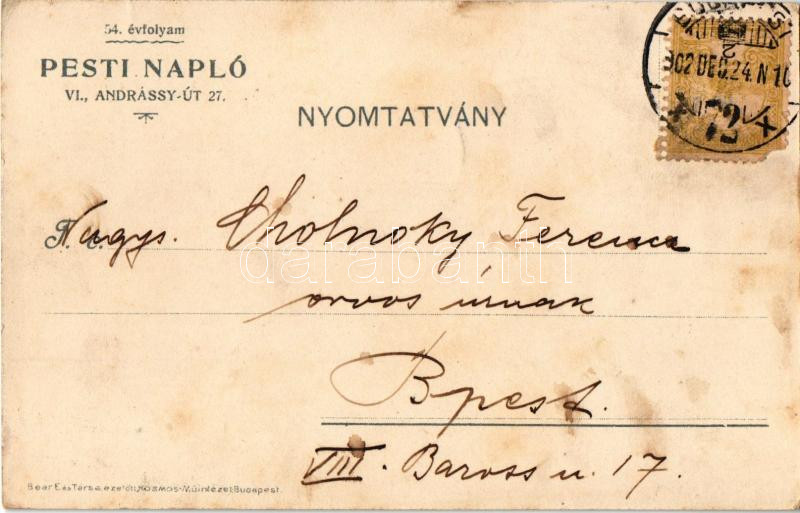 54. évfolyam
PESTI NAPLÓ
VI., ANDRÁSSY-ÚT 27.
NYOMTATVÁNY
902 DEC. 24. N 10
72
Nagys. Cholnoky Ferencz
orvos úrnak
Bpest.
VIII. Baross u. 17.
darabanth
KOSMOS Műintézet Budapest.